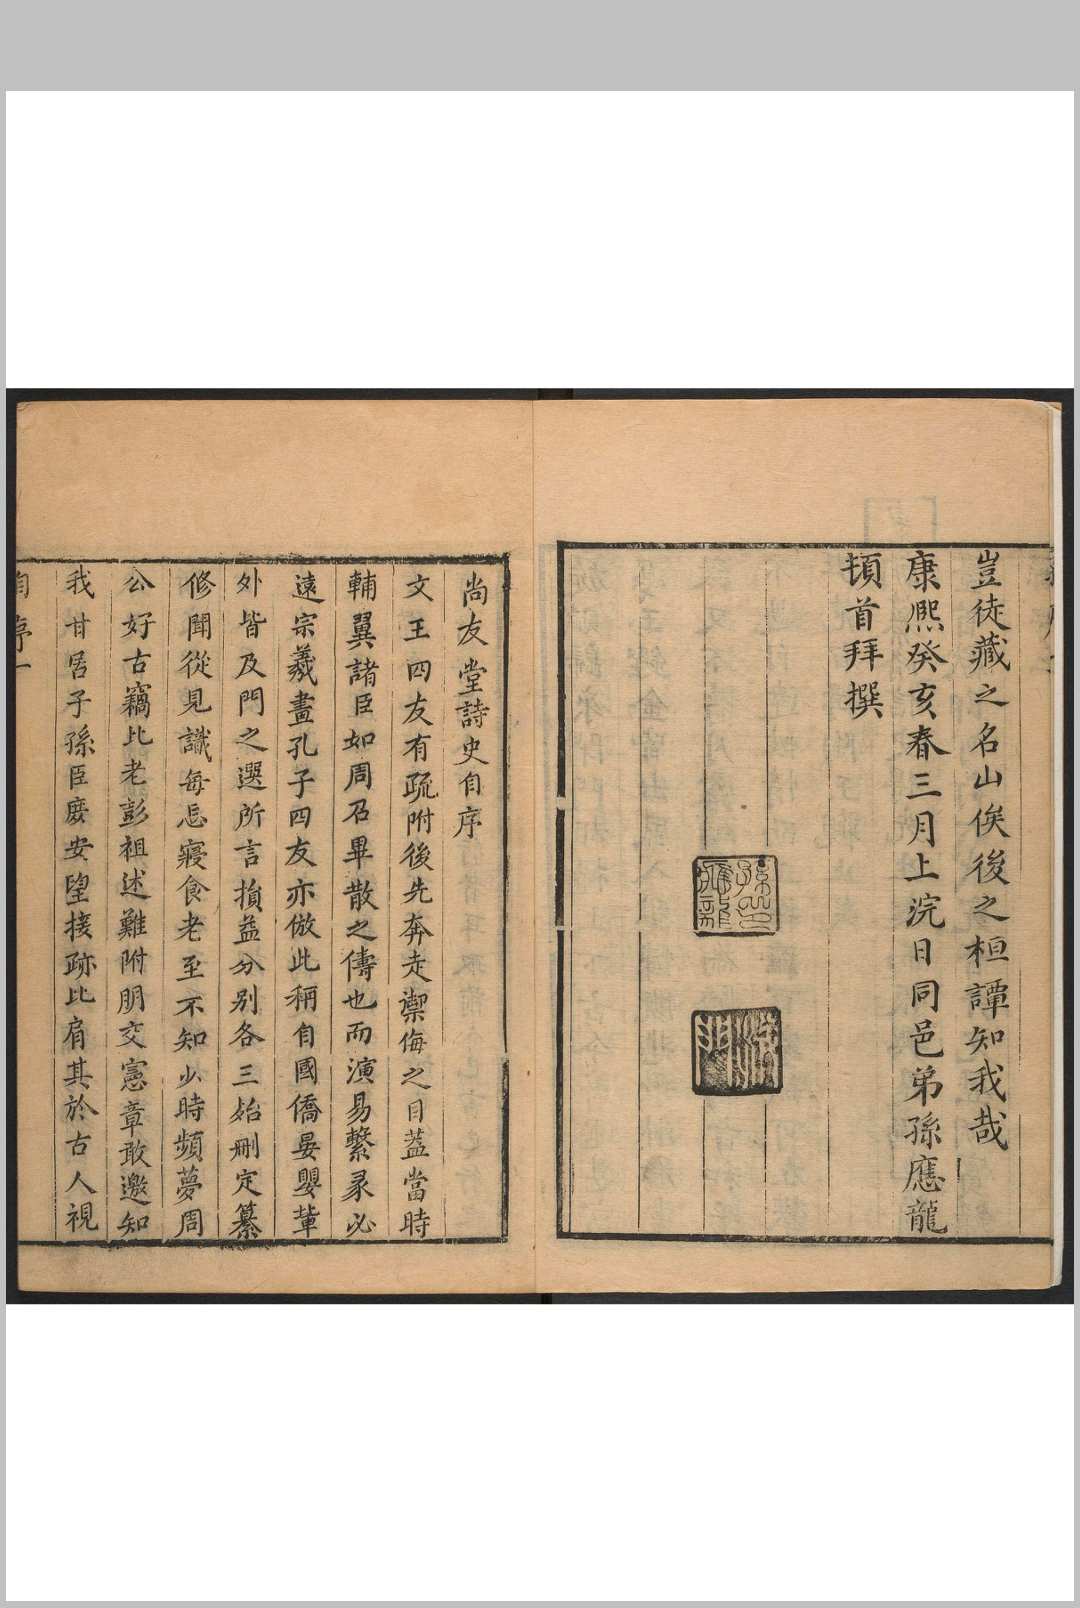 豈徒藏之名山俟後之桓譚知我哉
康熙癸亥春三月上浣日同邑弟孫應龍
頓首拜撰
孫印應龍
尚友堂詩史自序
文王四友有疏附後先奔走禦侮之目蓋當時
輔翼諸臣如周召畢散之儔也而演易繫彖必
遠宗羲畫孔子四友亦倣此稱自國僑晏嬰輩
外皆及門之選所言損益分別各三始刪定纂
修聞從見識每忘寢食老至不知少時頻夢周
公好古竊比老彭祖述難附朋交憲章敢邀知
我甘居子孫臣庶安望接跡比肩其於古人視
自序一